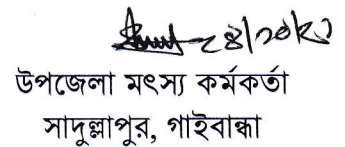 উপজেলা মৎস্য কর্মকর্তা
সাদুল্লাপুর, গাইবান্ধা